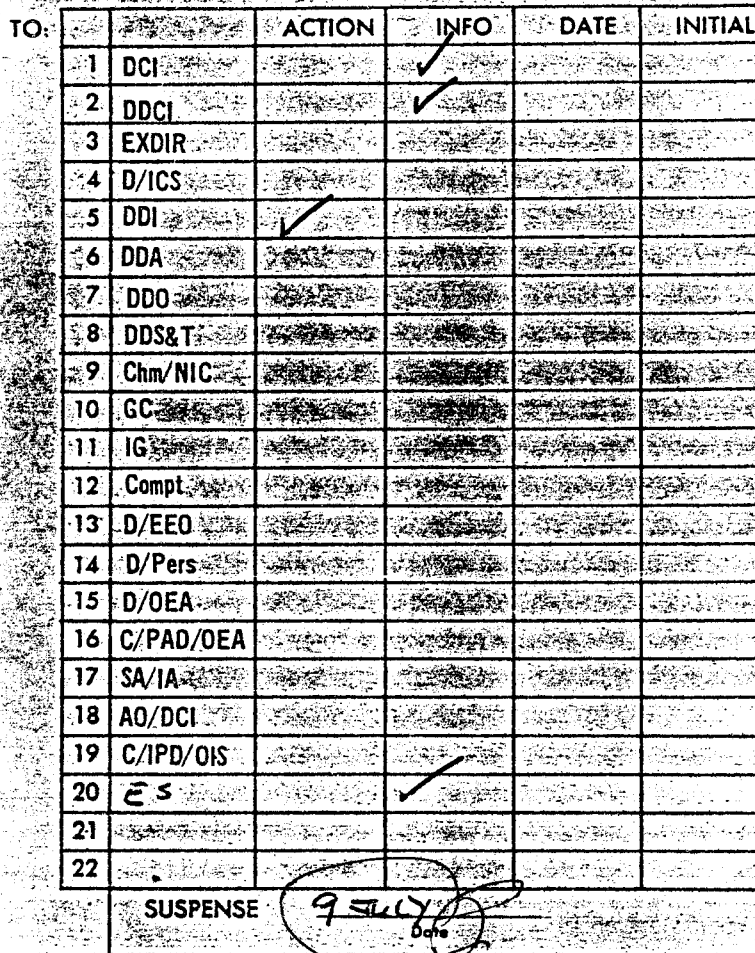 TO: ACTION INFO DATE INITIAL
1 DCI ✓
2 DDCI ✓
3 EXDIR
4 D/ICS
5 DDI ✓
6 DDA
7 DDO
8 DDS&T
9 Chm/NIC
10 GC
11 IG
12 Compt
13 D/EEO
14 D/Pers
15 D/OEA
16 C/PAD/OEA
17 SA/IA
18 AO/DCI
19 C/IPD/OIS
20 ES ✓
21
22
SUSPENSE 9 JULY
Date